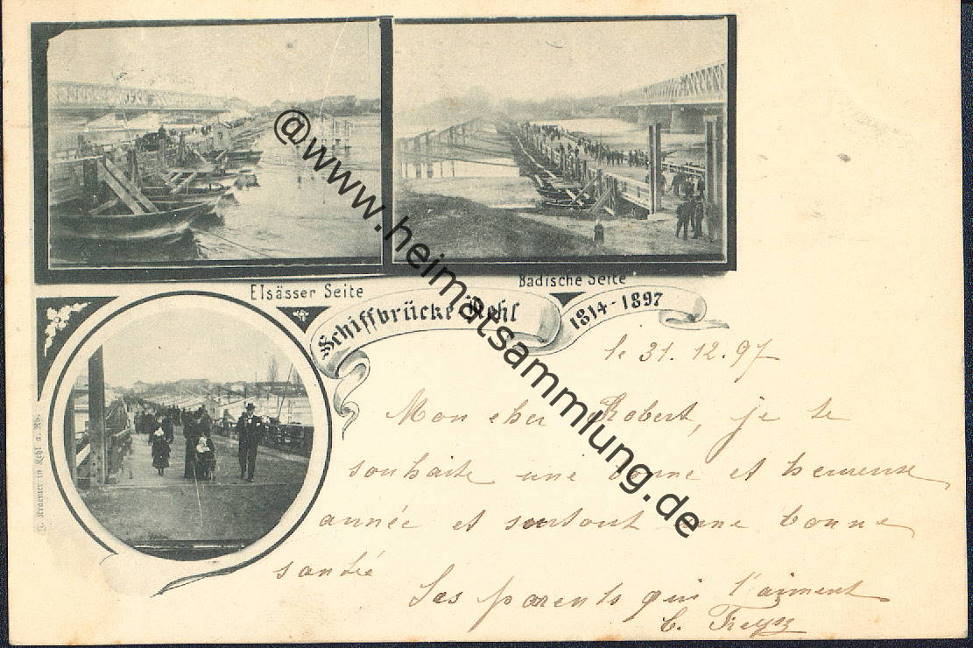 @www.heimatsammlung.de
Elsässer Seite
Badische Seite
Schiffbrücke Kehl
1814-1897
le 31. 12. 97
Mon cher Robert, je te
souhaite une bonne et heureuse
année et surtout une bonne
santé
Ses parents qui t'aiment
in Kehl a. Rh.